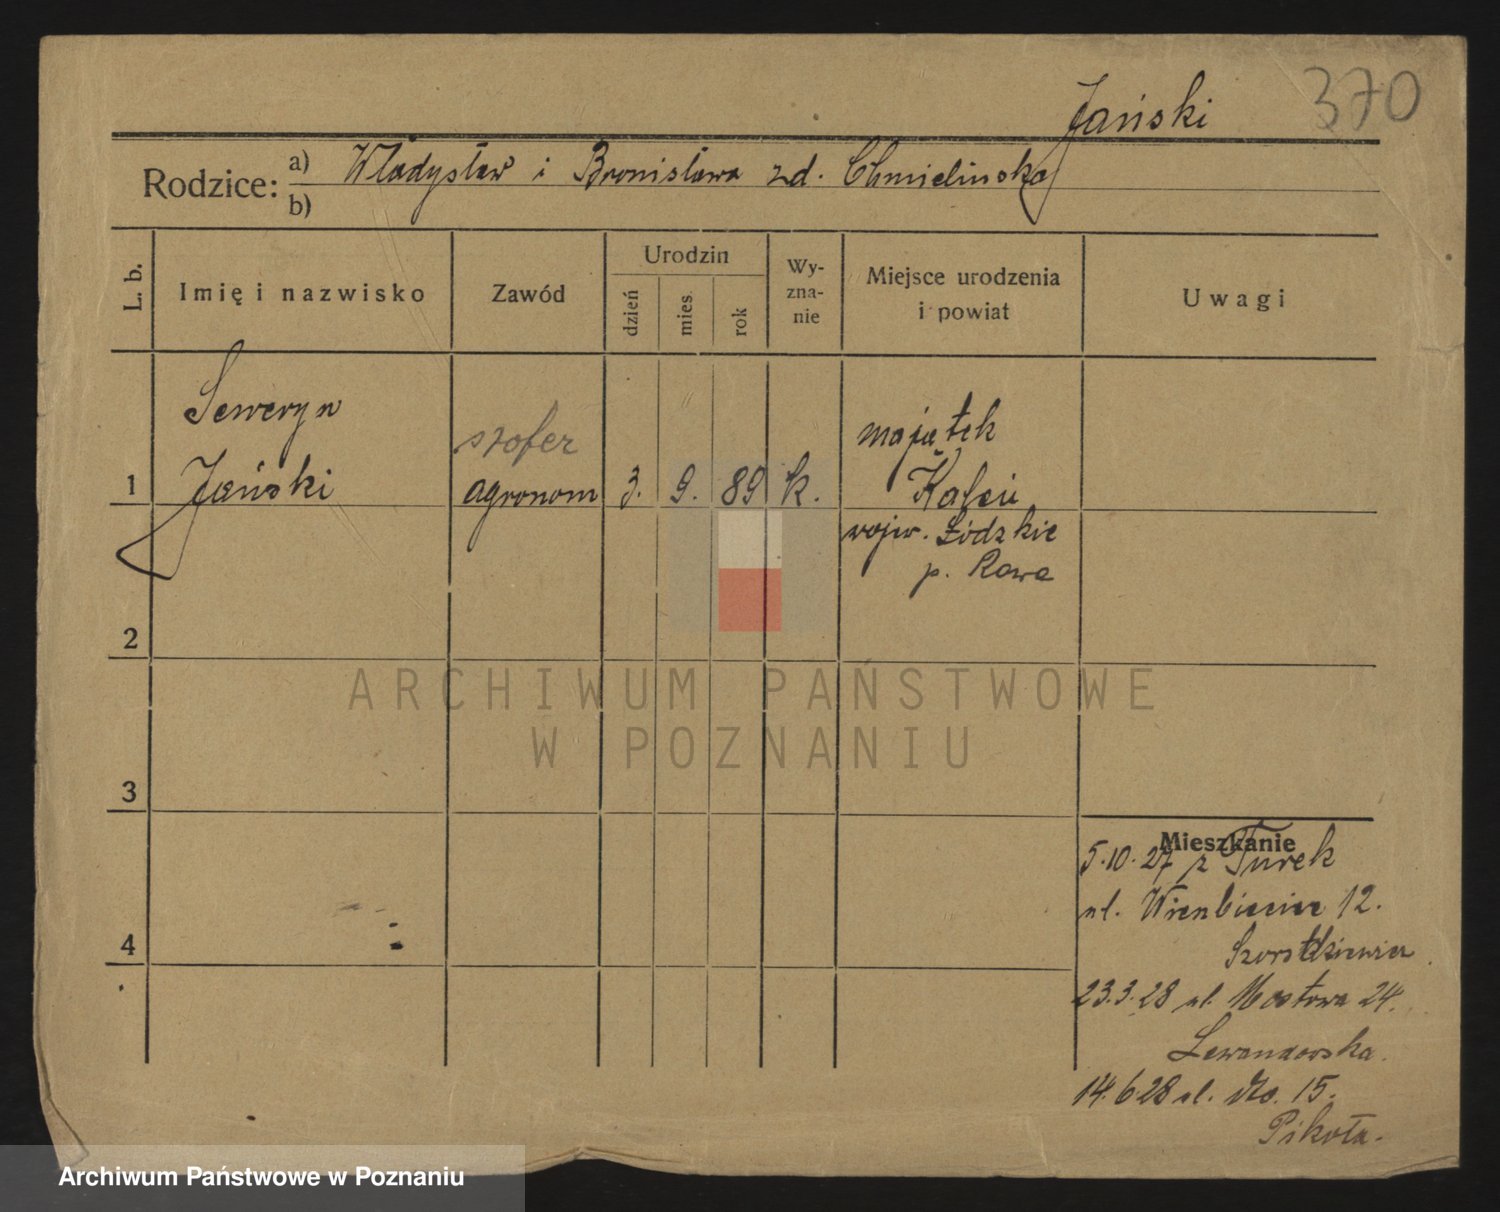 370
Jański
Rodzice: a) Władysław i Bronisława zd. Chmielinska
b)
L. b.
Imię i nazwisko
Zawód
Urodzin
dzień
mies.
rok
Wy-
zna-
nie
Miejsce urodzenia
i powiat
Uwagi
Seweryn
Jański
szofer
1
agronom
3.
9.
89
k.
majątek
wojew. Łódzkie
p. Rawa
2
3
4
Mieszkanie
5.10.27 z Turek
ul. 12.
23.3.28 ul. Mostowa 24.
Lewandowska.
14.6.28 ul. dto. 15.
Pikoła.
ARCHIWUM PAŃSTWOWE
W POZNANIU
Archiwum Państwowe w Poznaniu